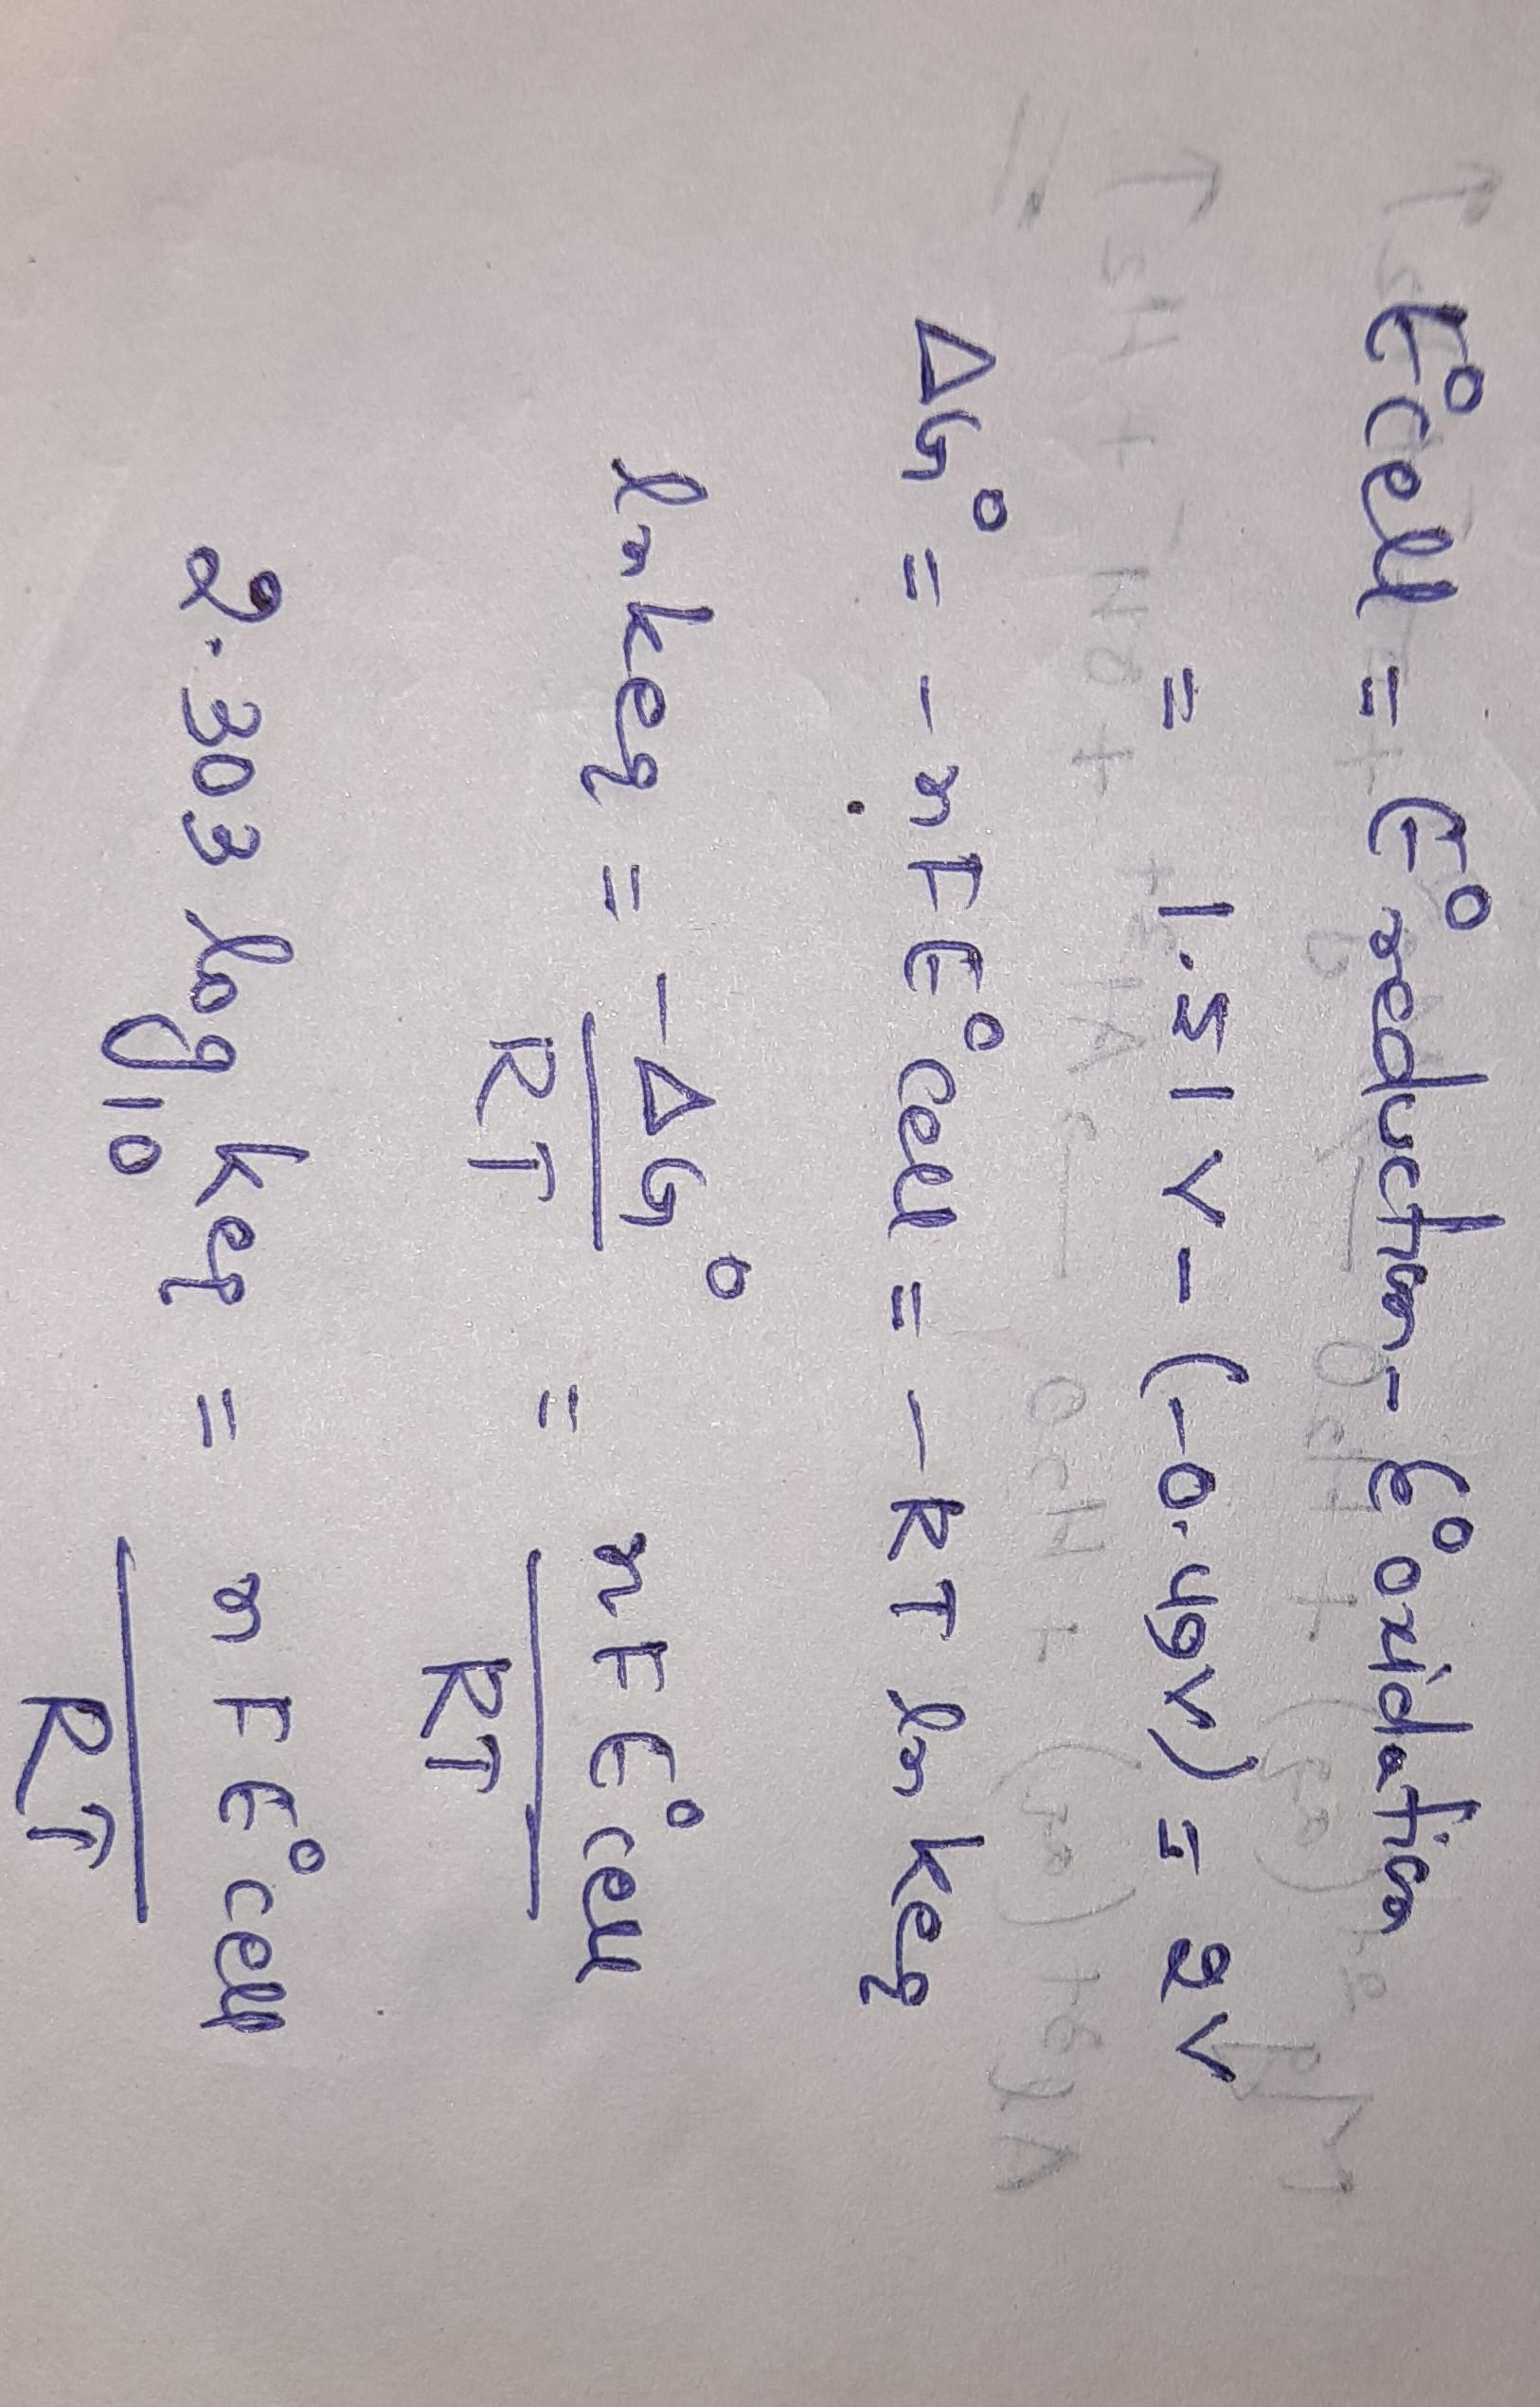 E°cell = E°reduction - E°oxidation
= 1.51 V - (-0.49V) = 2V
ΔG° = - nFE°cell = - RT ln keq
ln keq = -ΔG°/RT = nFE°cell/RT
2.303 log10 keq = nFE°cell/RT